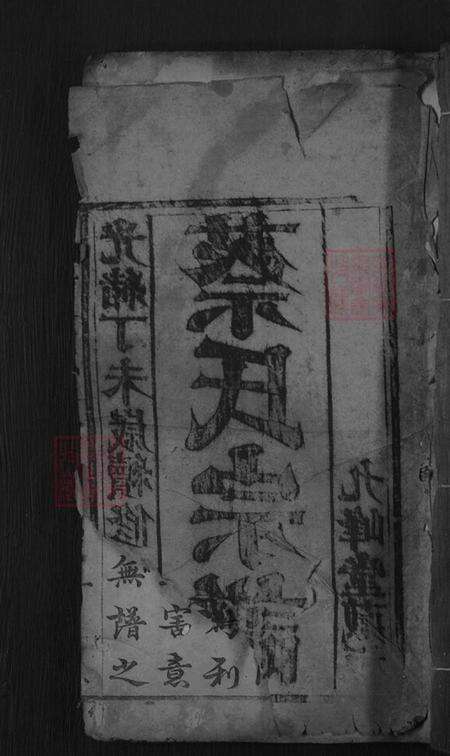 光緒丁未歲續修
蔡氏宗譜
九峰堂
利
害意
無譜之